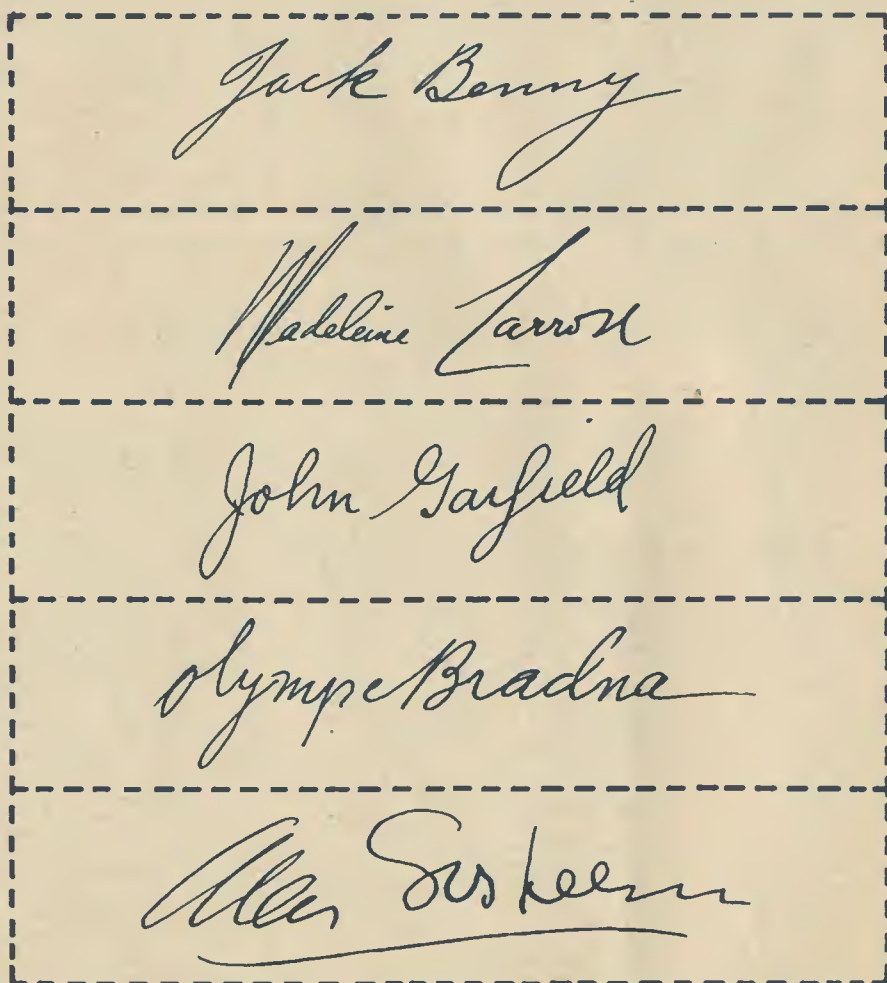 Jack Benny
Madeleine Carroll
John Garfield
Olympe Bradna